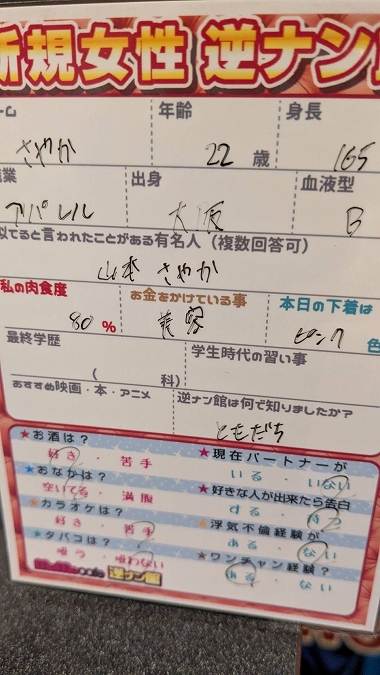 新規女性 逆ナン館
ーム 年齢 身長
さやか 22 歳 165
職業 出身 血液型
アパレル 大阪 B
似てると言われたことがある有名人（複数回答可）
山本 さやか
私の肉食度 お金をかけている事 本日の下着は
80 % 美容 ピンク 色
最終学歴 学生時代の習い事
（ 科）
おすすめ映画・本・アニメ 逆ナン館は何で知りましたか？
ともだち
★お酒は？ ★現在パートナーが
好き・苦手 いる・いない
★おなかは？ ★好きな人が出来たら告白
空いてる・満腹 する・待つ
★カラオケは？ ★浮気不倫経験が
好き・苦手 ある・ない
★タバコは？ ★ワンチャン経験？
吸う・吸わない ある・ない
cafe 逆ナン館